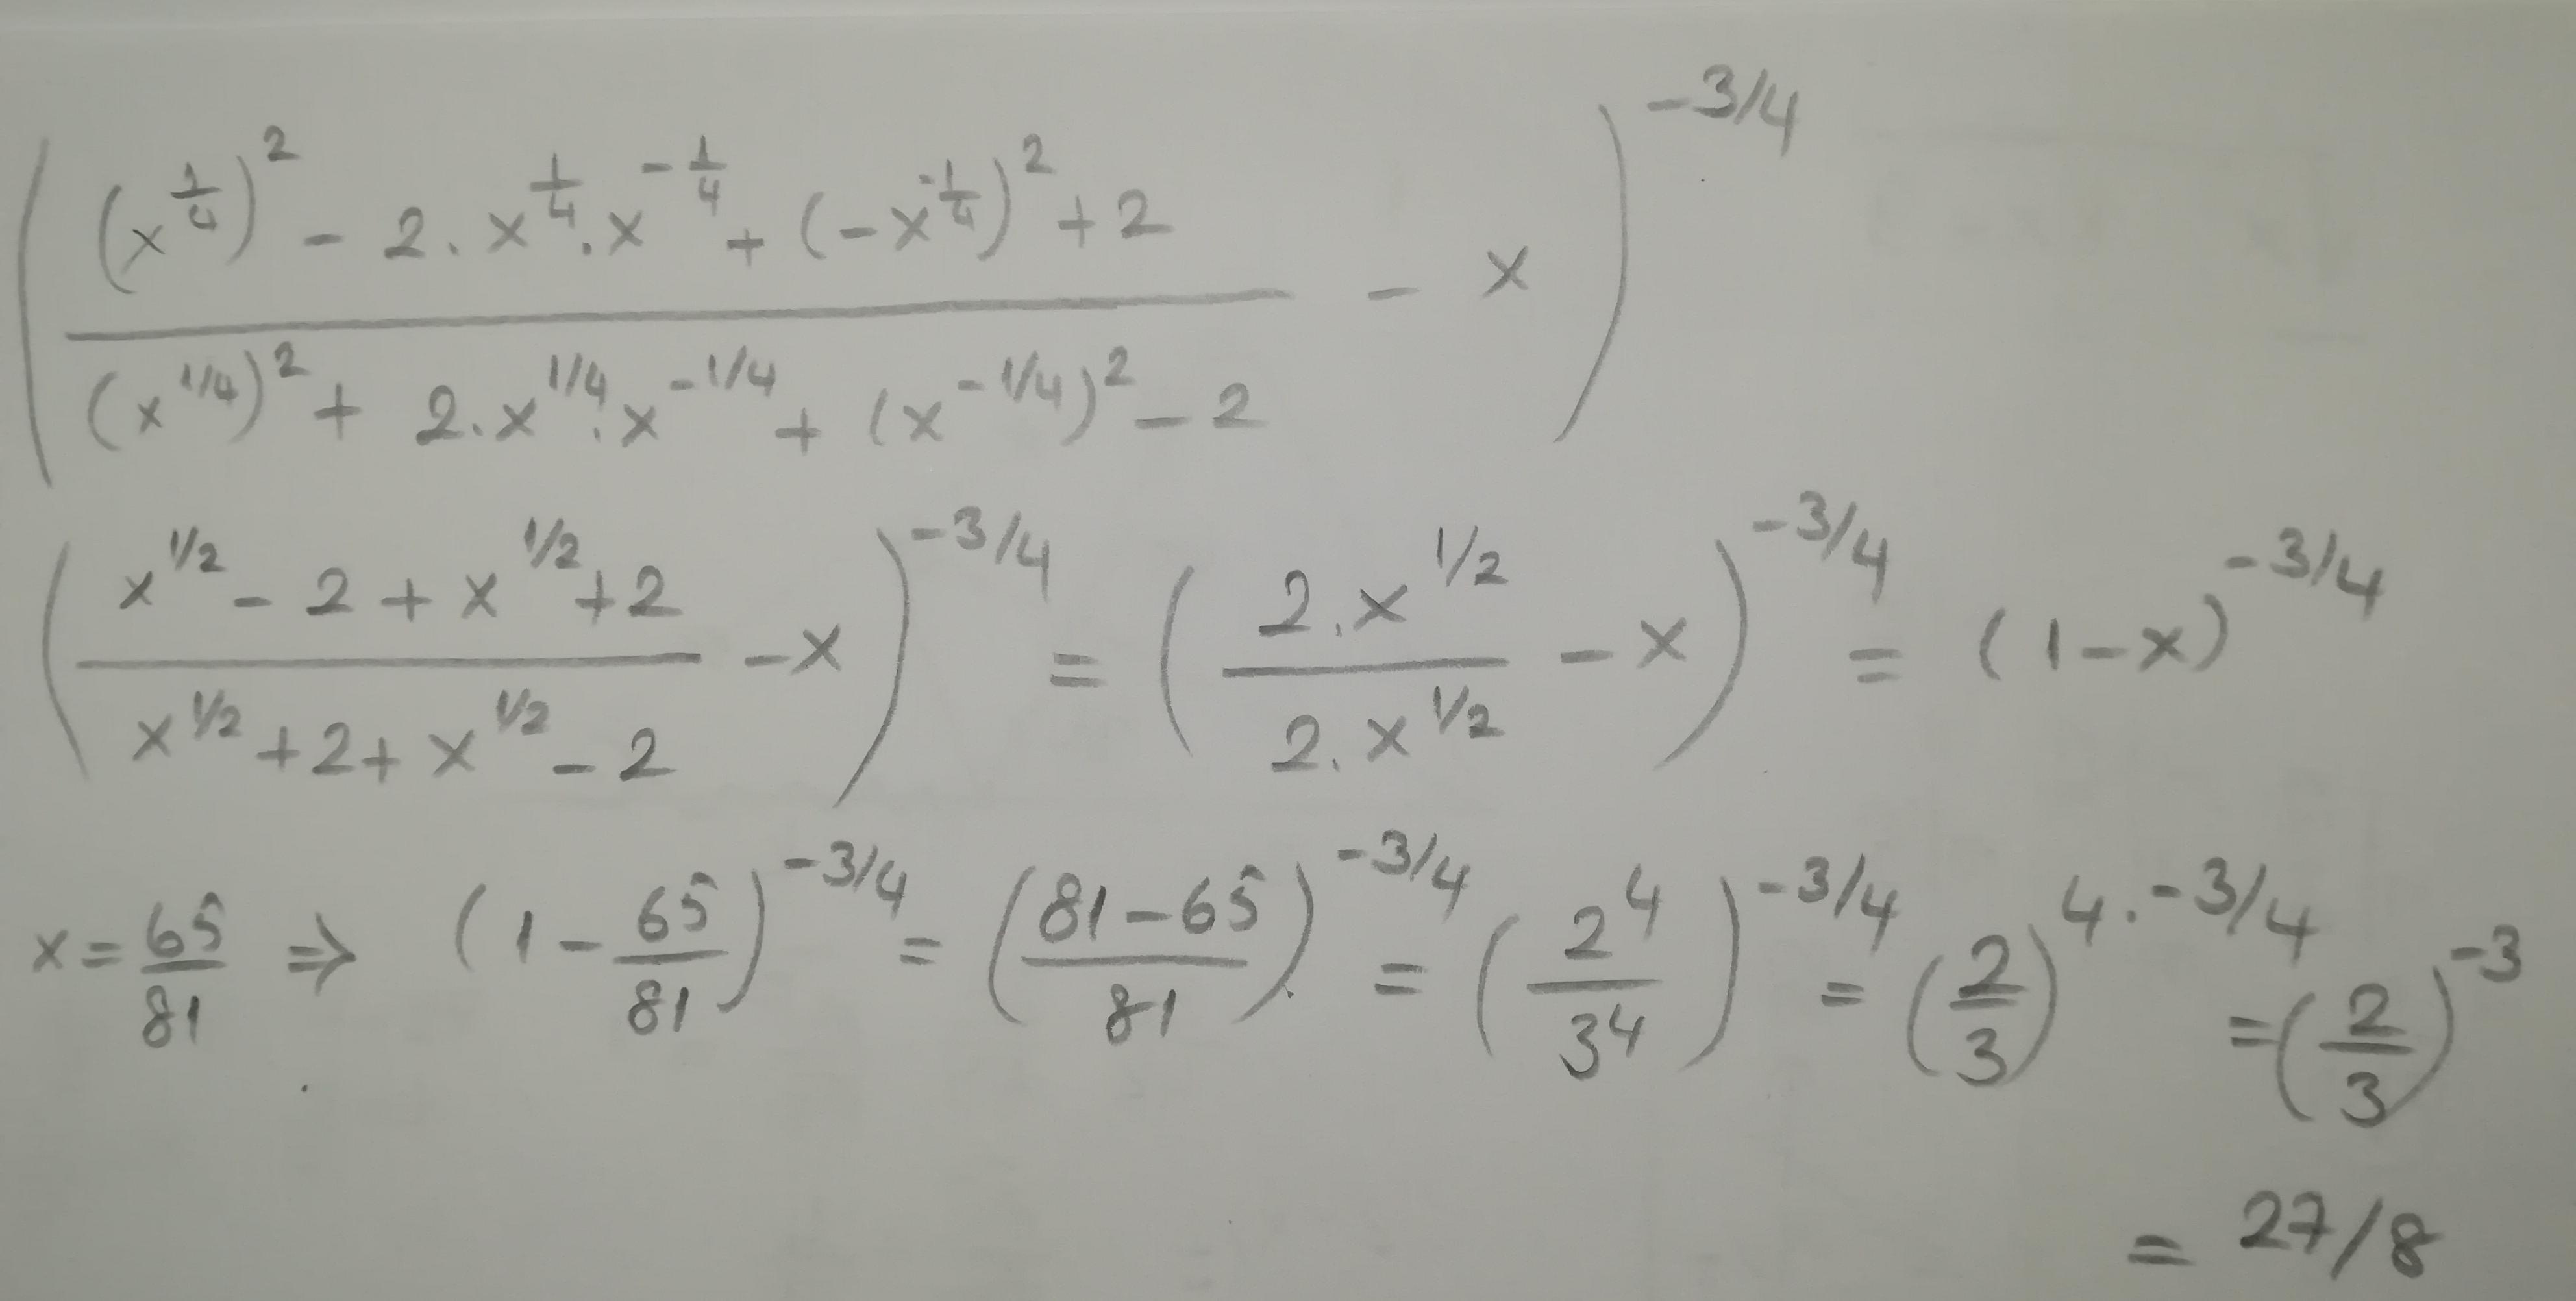 ( ((x^{1/4})^2 - 2.x^{1/4}.x^{-1/4} + (-x^{-1/4})^2 + 2) / ((x^{1/4})^2 + 2.x^{1/4}.x^{-1/4} + (x^{-1/4})^2 - 2) - x )^{-3/4}
( (x^{1/2} - 2 + x^{1/2} + 2) / (x^{1/2} + 2 + x^{1/2} - 2) - x )^{-3/4} = ( (2.x^{1/2}) / (2.x^{1/2}) - x )^{-3/4} = (1-x)^{-3/4}
x = 65/81 ⇒ (1 - 65/81)^{-3/4} = ((81-65)/81)^{-3/4} = (2^4/3^4)^{-3/4} = (2/3)^{4.-3/4} = (2/3)^{-3}
= 27/8